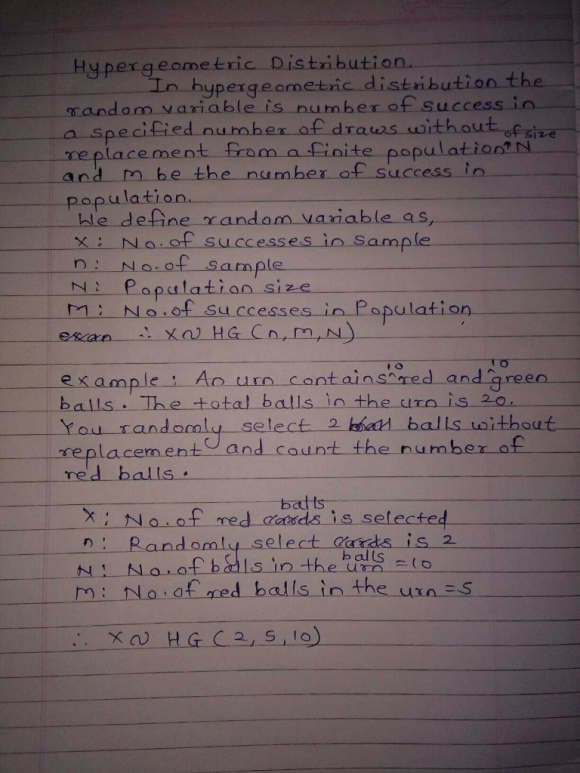 Hypergeometric Distribution.
In hypergeometric distribution the
random variable is number of success in
a specified number of draws without
replacement from a finite population of size N
and M be the number of success in
population.
We define random variable as,
X : No. of successes in sample
n : No. of sample
N : Population size
M : No. of successes in Population
∴ X ~ HG (n, M, N)
example : An urn contains 10 red and 10 green
balls. The total balls in the urn is 20.
You randomly select 2 balls without
replacement and count the number of
red balls.
X : No. of red balls is selected
n : Randomly select balls is 2
N : No. of balls in the urn = 10
M : No. of red balls in the urn = 5
∴ X ~ HG (2, 5, 10)